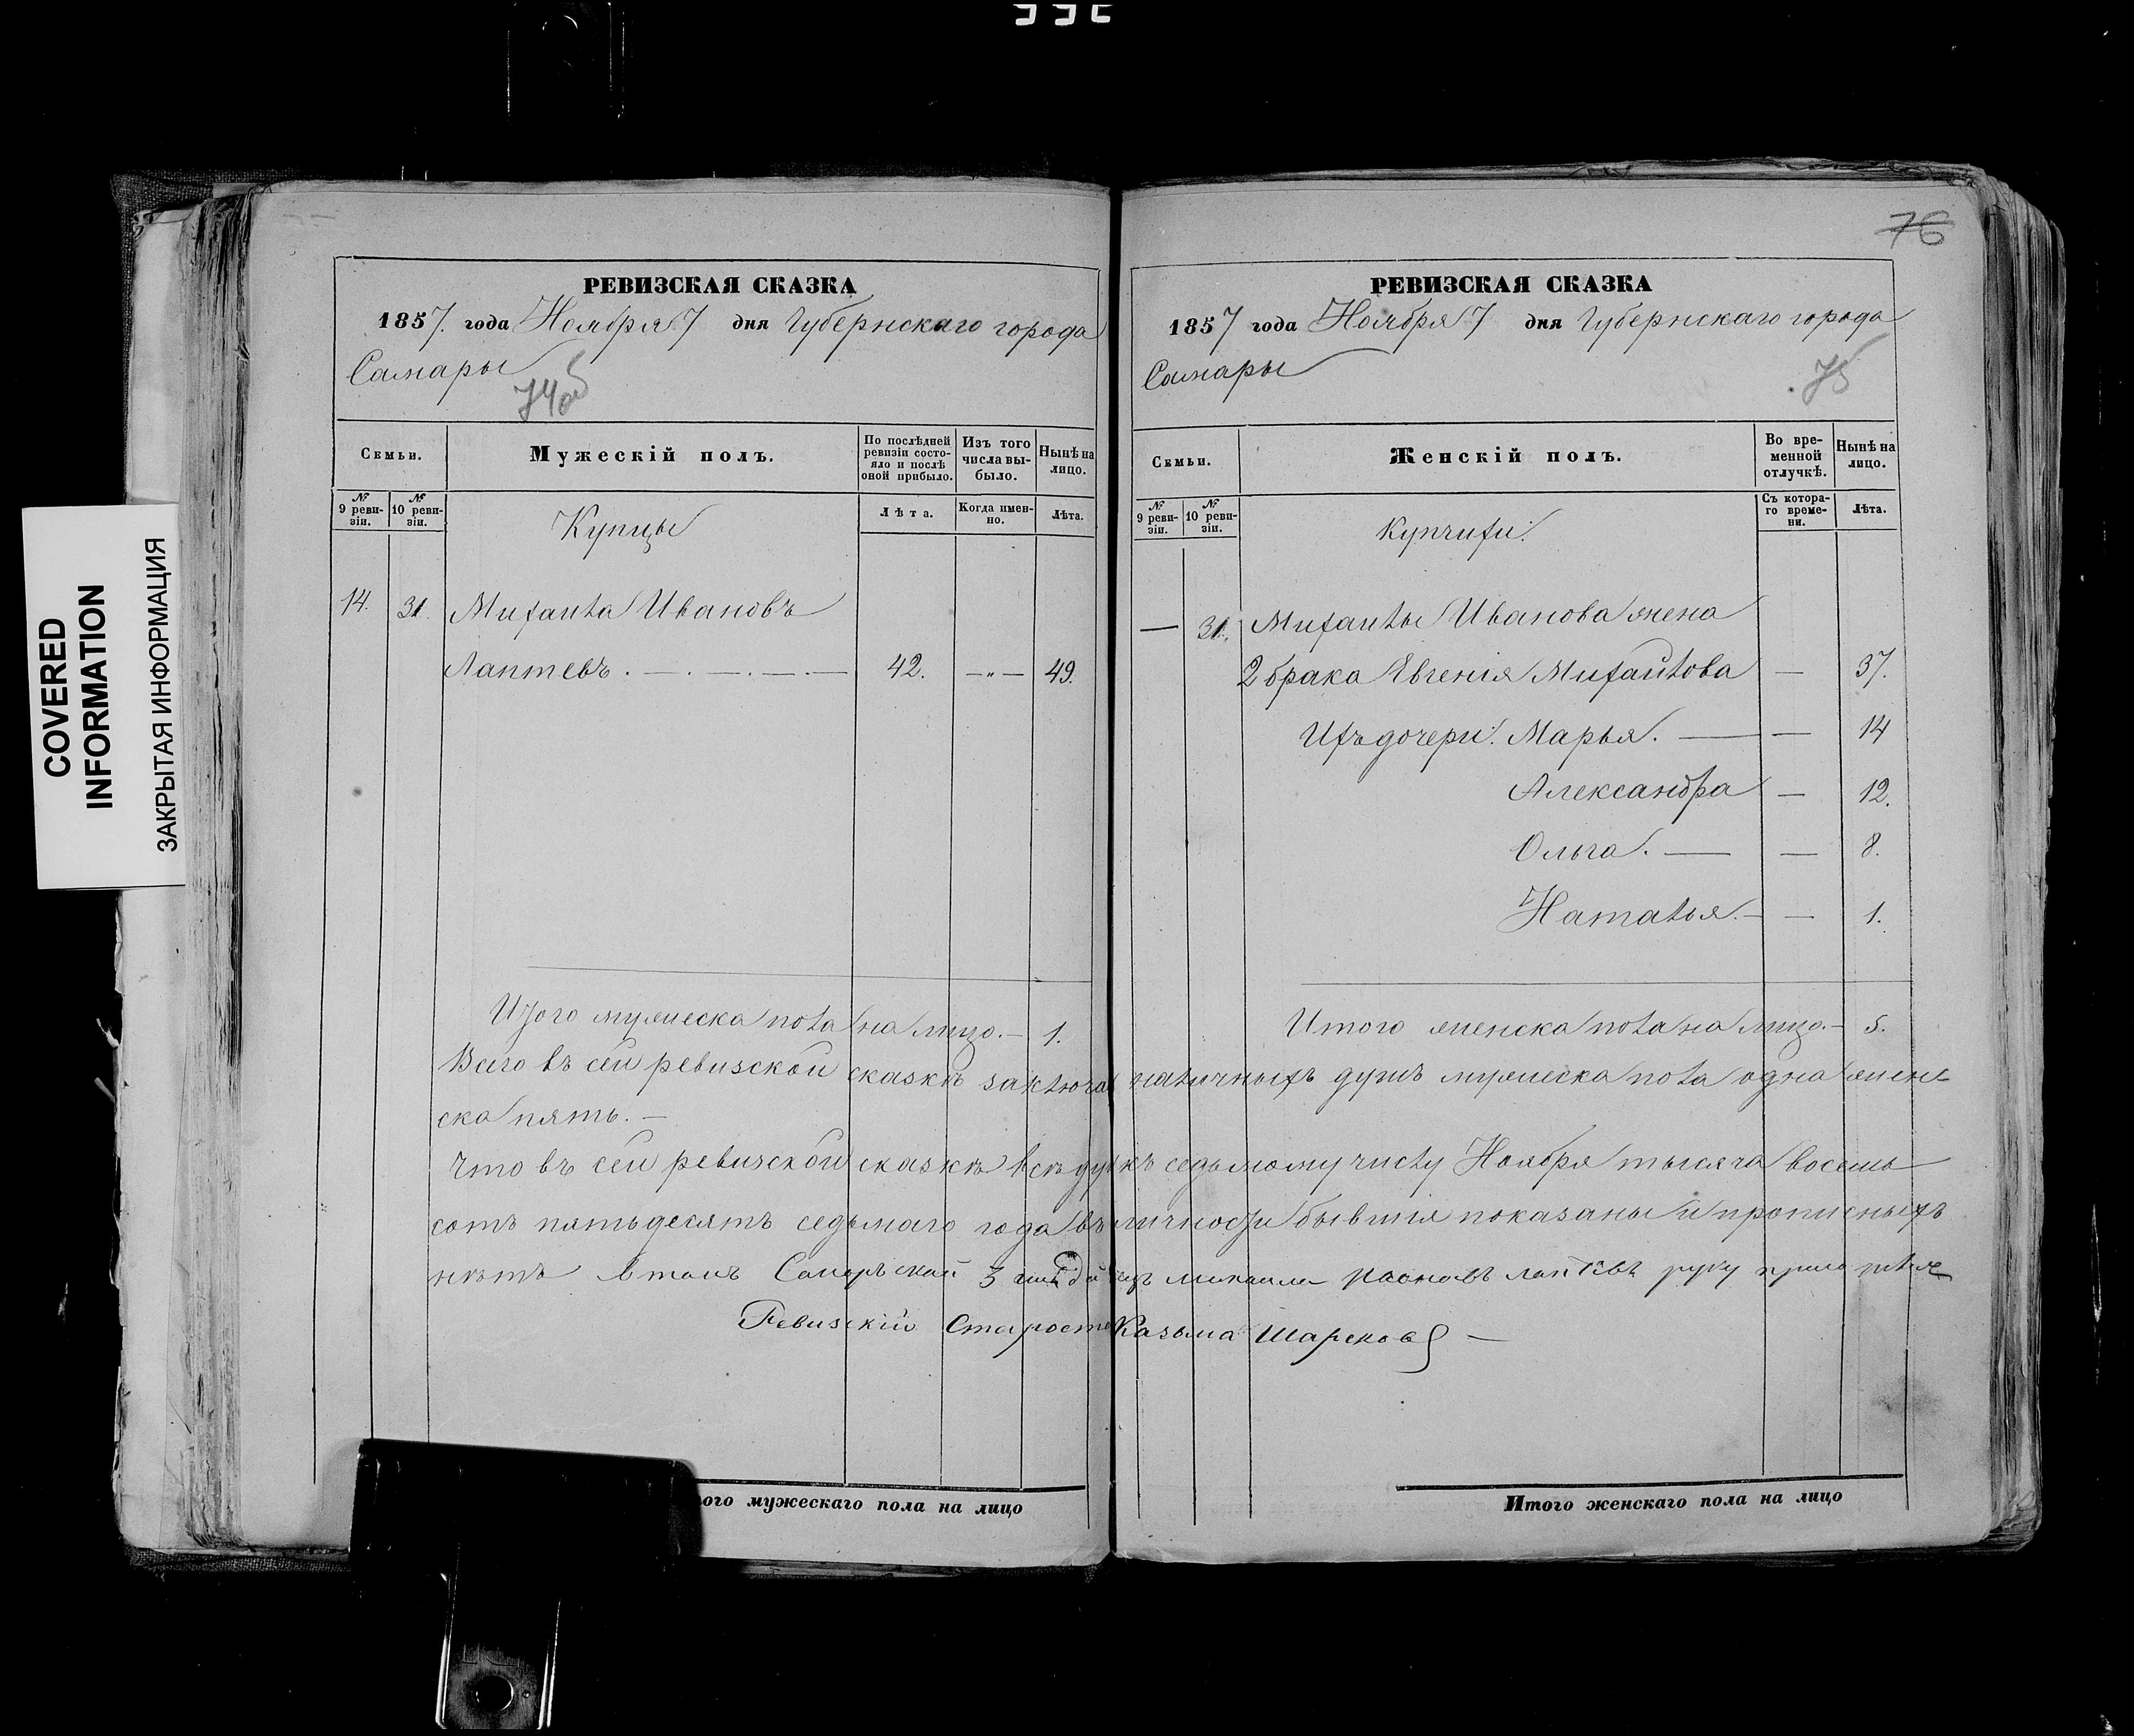 76
РЕВИЗСКАЯ СКАЗКА
1857. года Ноября 7 дня Губернскаго города
Самары
74об
Семьи.
Мужескій полъ.
По послѣдней ревизіи состояло и послѣ оной прибыло.
Изъ того числа выбыло.
Нынѣ на лицо.
№ 9 ревизіи.
№ 10 ревизіи.
Лѣта.
Когда именно.
Лѣта.
Купцы
14. 31. Михаила Ивановъ
Лаптевъ. 42. — " — 49.
Итого мужеска пола на лицо. — 1.
РЕВИЗСКАЯ СКАЗКА
1857 года Ноября 7 дня Губернскаго города
Самары
75
Семьи.
Женскій полъ.
Во временной отлучкѣ.
Нынѣ на лицо.
№ 9 ревизіи.
№ 10 ревизіи.
Съ котораго времени.
Лѣта.
Купчихи.
— 31. Михаилы Иванова жена
2 брака Евгенія Михайлова — 37.
Ихъ дочери: Марья. — 14
Александра — 12.
Ольга. — 8.
Наталья. — 1.
Итого женска пола на лицо. — 5.
Всего въ сей ревизской сказкѣ заключа наличныхъ душъ мужеска пола одна жен
ска пять. —
Что въ сей ревизской сказкѣ всѣ ду къ седьмому числу Ноября тысяча восемь
сотъ пятьдесятъ седьмаго года въ личности бывшія показаны и прописныхъ
нѣтъ втомъ Самарской 3 Лаптевъ руку приложилъ
Ревизскій Староста Казьма Шарсковъ —
ого мужескаго пола на лицо
Итого женскаго пола на лицо
COVERED
INFORMATION
ЗАКРЫТАЯ ИНФОРМАЦИЯ